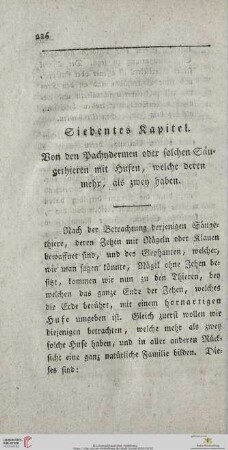 226
Siebentes Kapitel.
Von den Pachydermen oder solchen Säu-
gethieren mit Hufen, welche deren
mehr, als zwey haben.
Nach der Betrachtung derjenigen Säuge-
thiere, deren Zehen mit Nägeln oder Klauen
bewaffnet sind, und des Elephanten, welcher,
wie man sagen könnte, Nägel ohne Zehen be-
sitzt, kommen wir nun zu den Thieren, bey
welchen das ganze Ende der Zehen, welches
die Erde berührt, mit einem hornartigen
Hufe umgeben ist. Gleich zuerst wollen wir
diejenigen betrachten, welche mehr als zwey
solche Hufe haben, und in aller anderen Rück-
sicht eine ganz natürliche Familie bilden. Die-
ses sind: